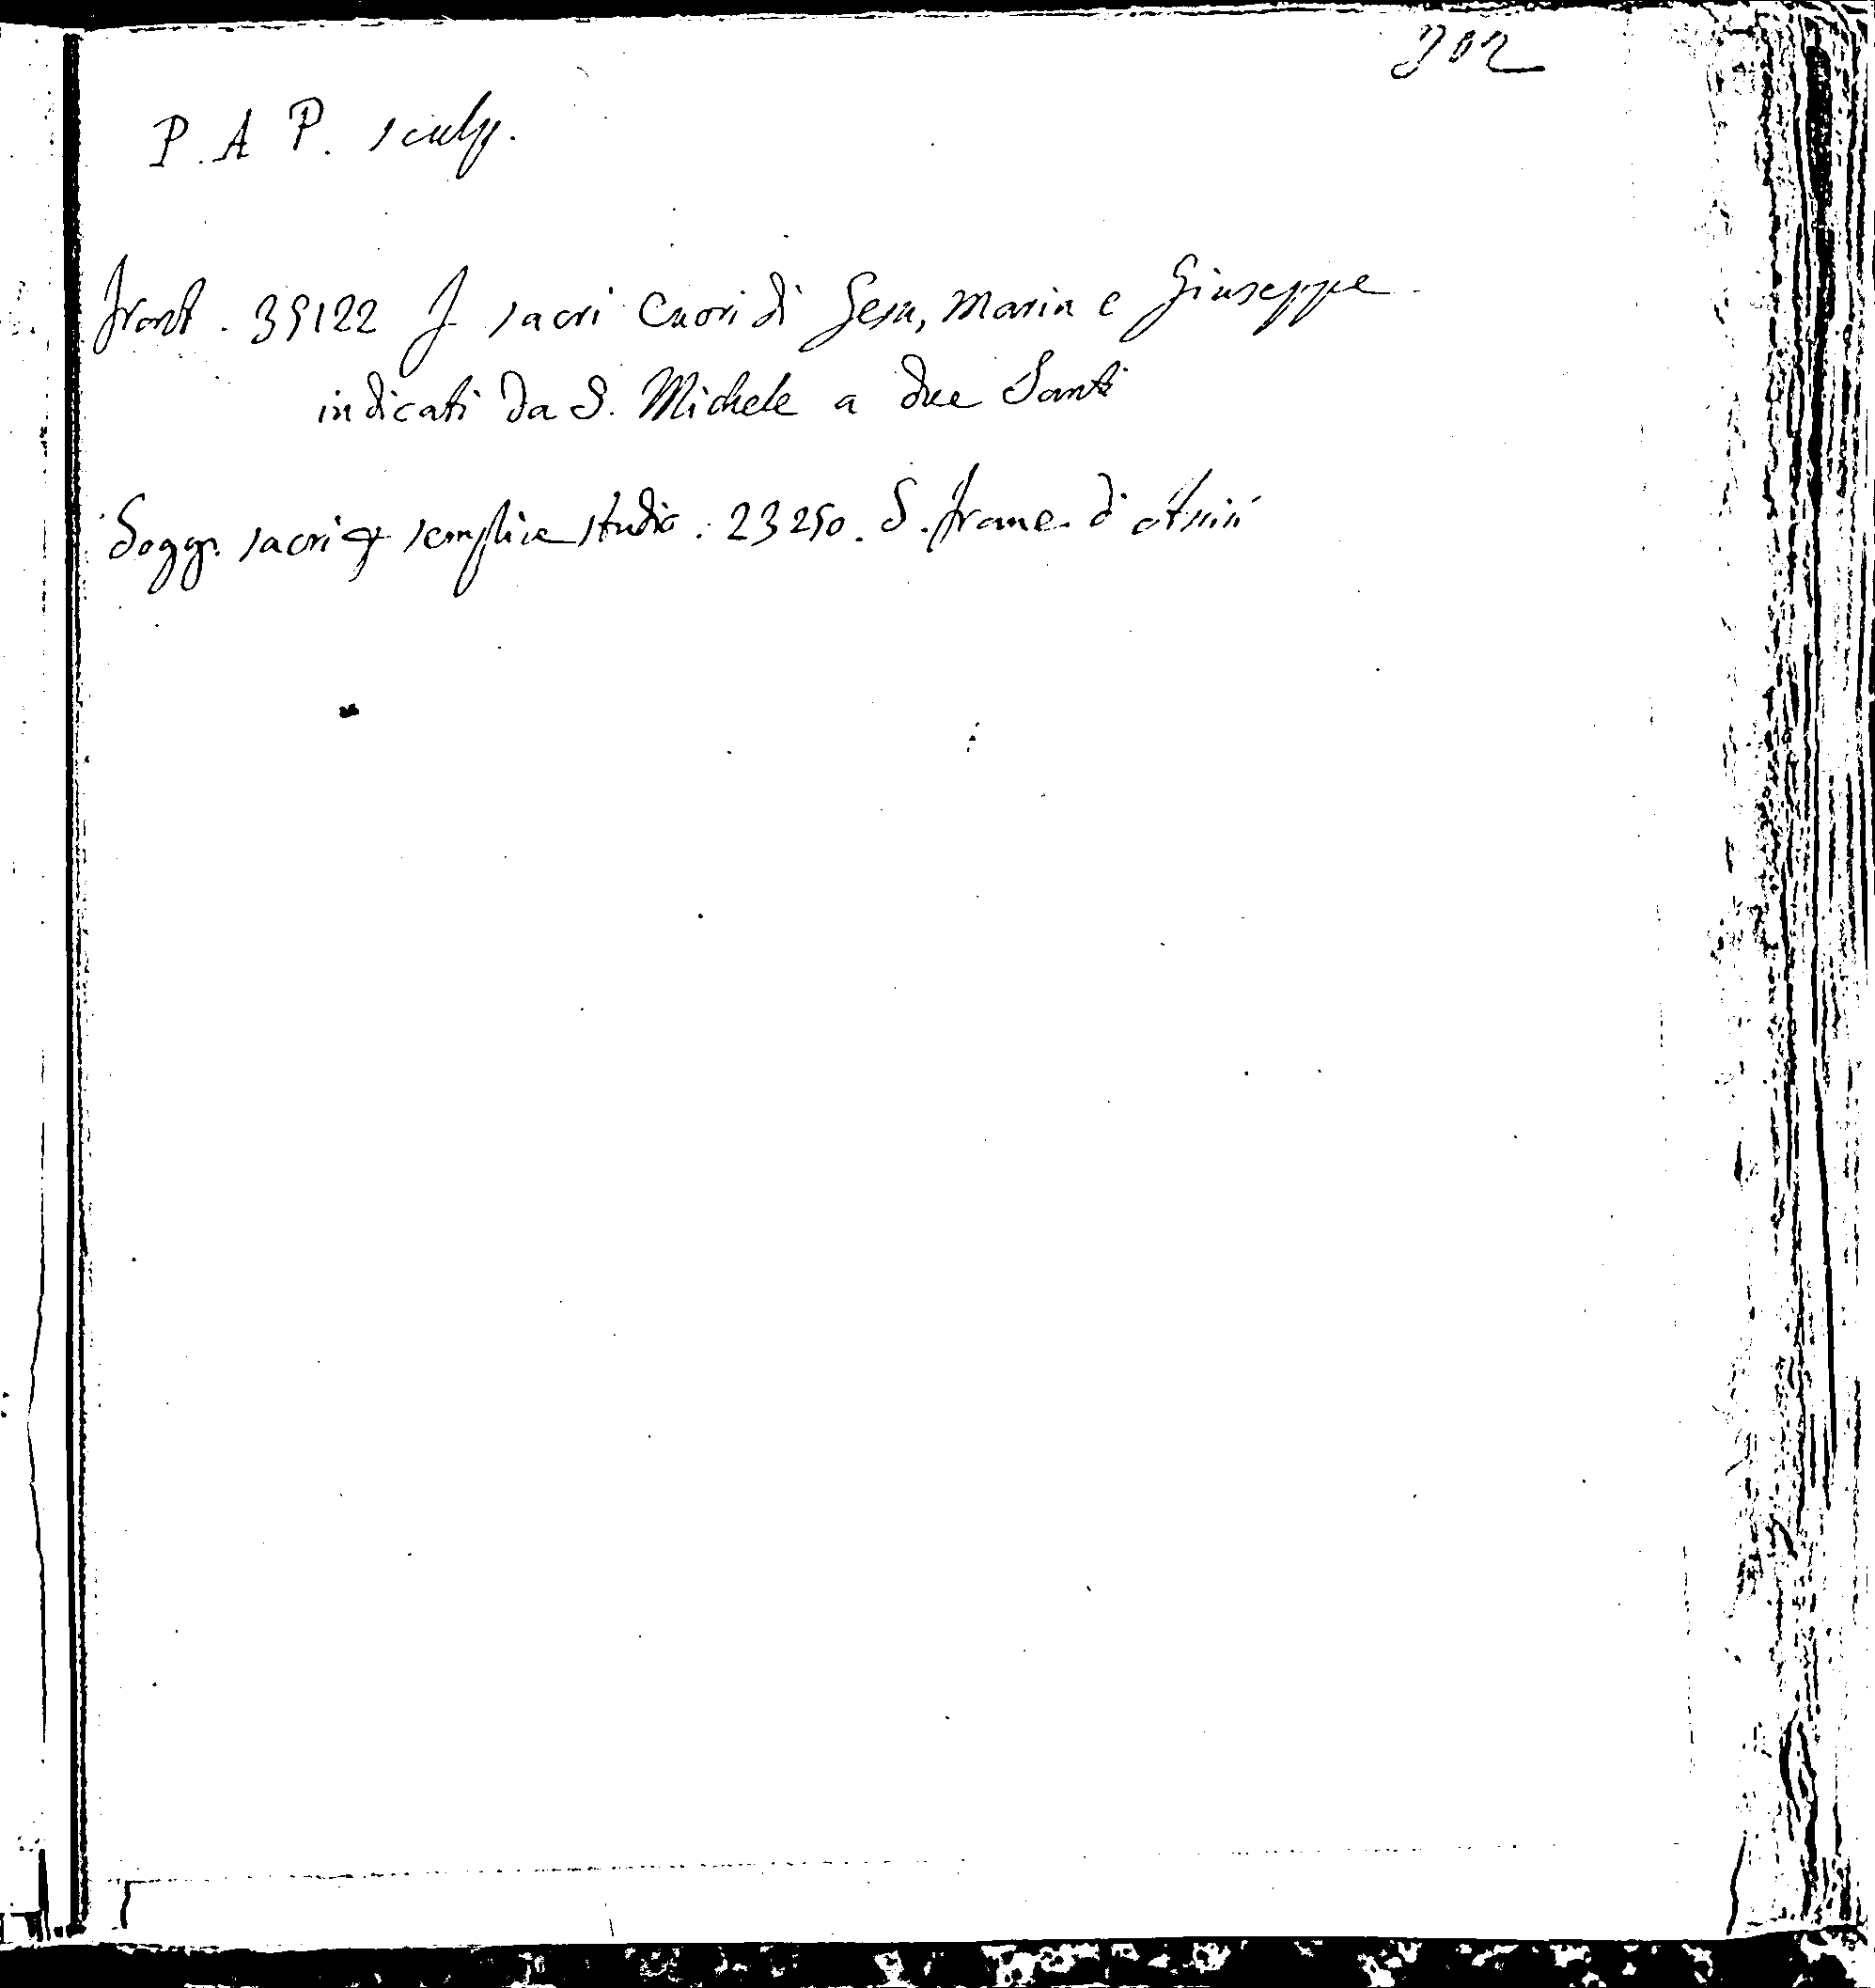 302
P. A P. sculp.
Front. 39122 I sacri Cuori di Gesu, Maria e Giuseppe
indicati da S. Michele a due Santi
Sogg. sacri semplice studio. 23250. S. Franc. d'Assisi